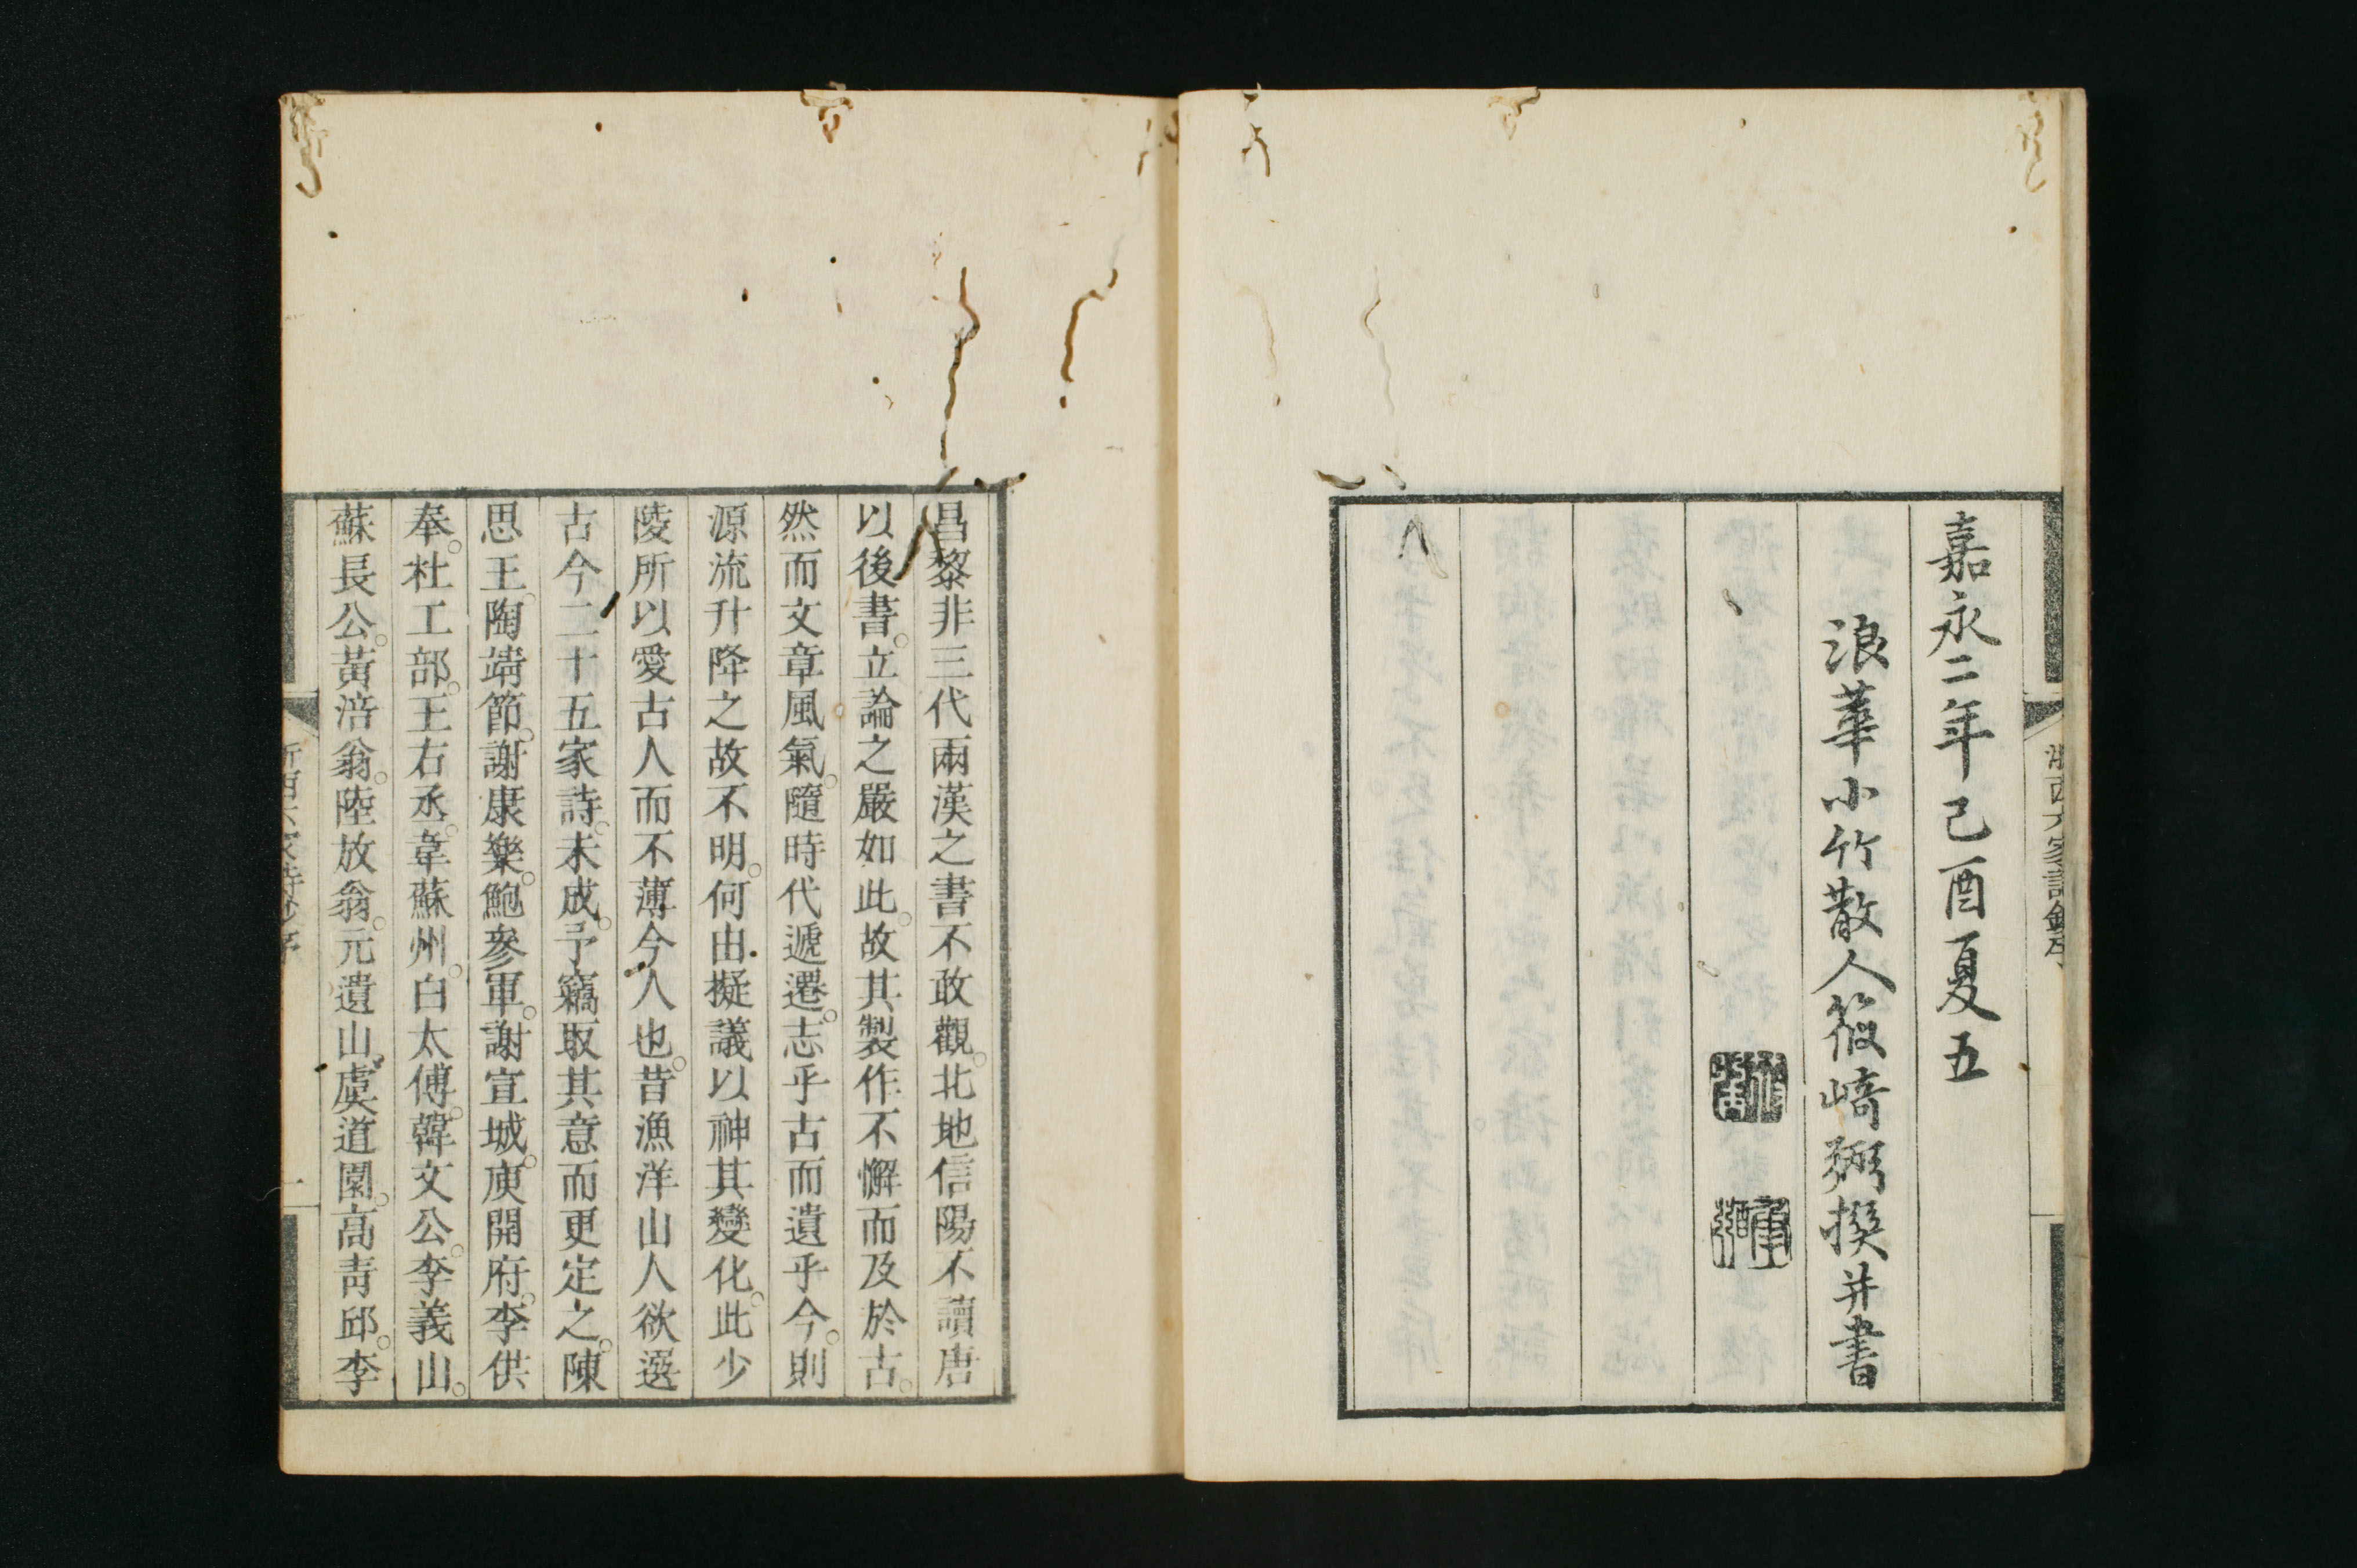 嘉永二年己酉夏五
浪華小竹散人筱﨑弼撰并書
昌黎非三代兩漢之書不敢觀。北地信陽不讀唐
以後書。立論之嚴如此。故其製作不懈而及於古。
然而文章風氣。隨時代遞遷。志乎古而遺乎今。則
源流升降之故不明。何由擬議以神其變化。此少
陵所以愛古人而不薄今人也。昔漁洋山人欲選
古今二十五家詩。未成。予竊取其意而更定之。陳
思王。陶靖節。謝康樂。鮑參軍。謝宣城。庾開府。李供
奉。杜工部。王右丞。韋蘇州。白太傅。韓文公。李義山。
蘇長公。黃涪翁。陸放翁。元遺山。虞道園。高青邱。李